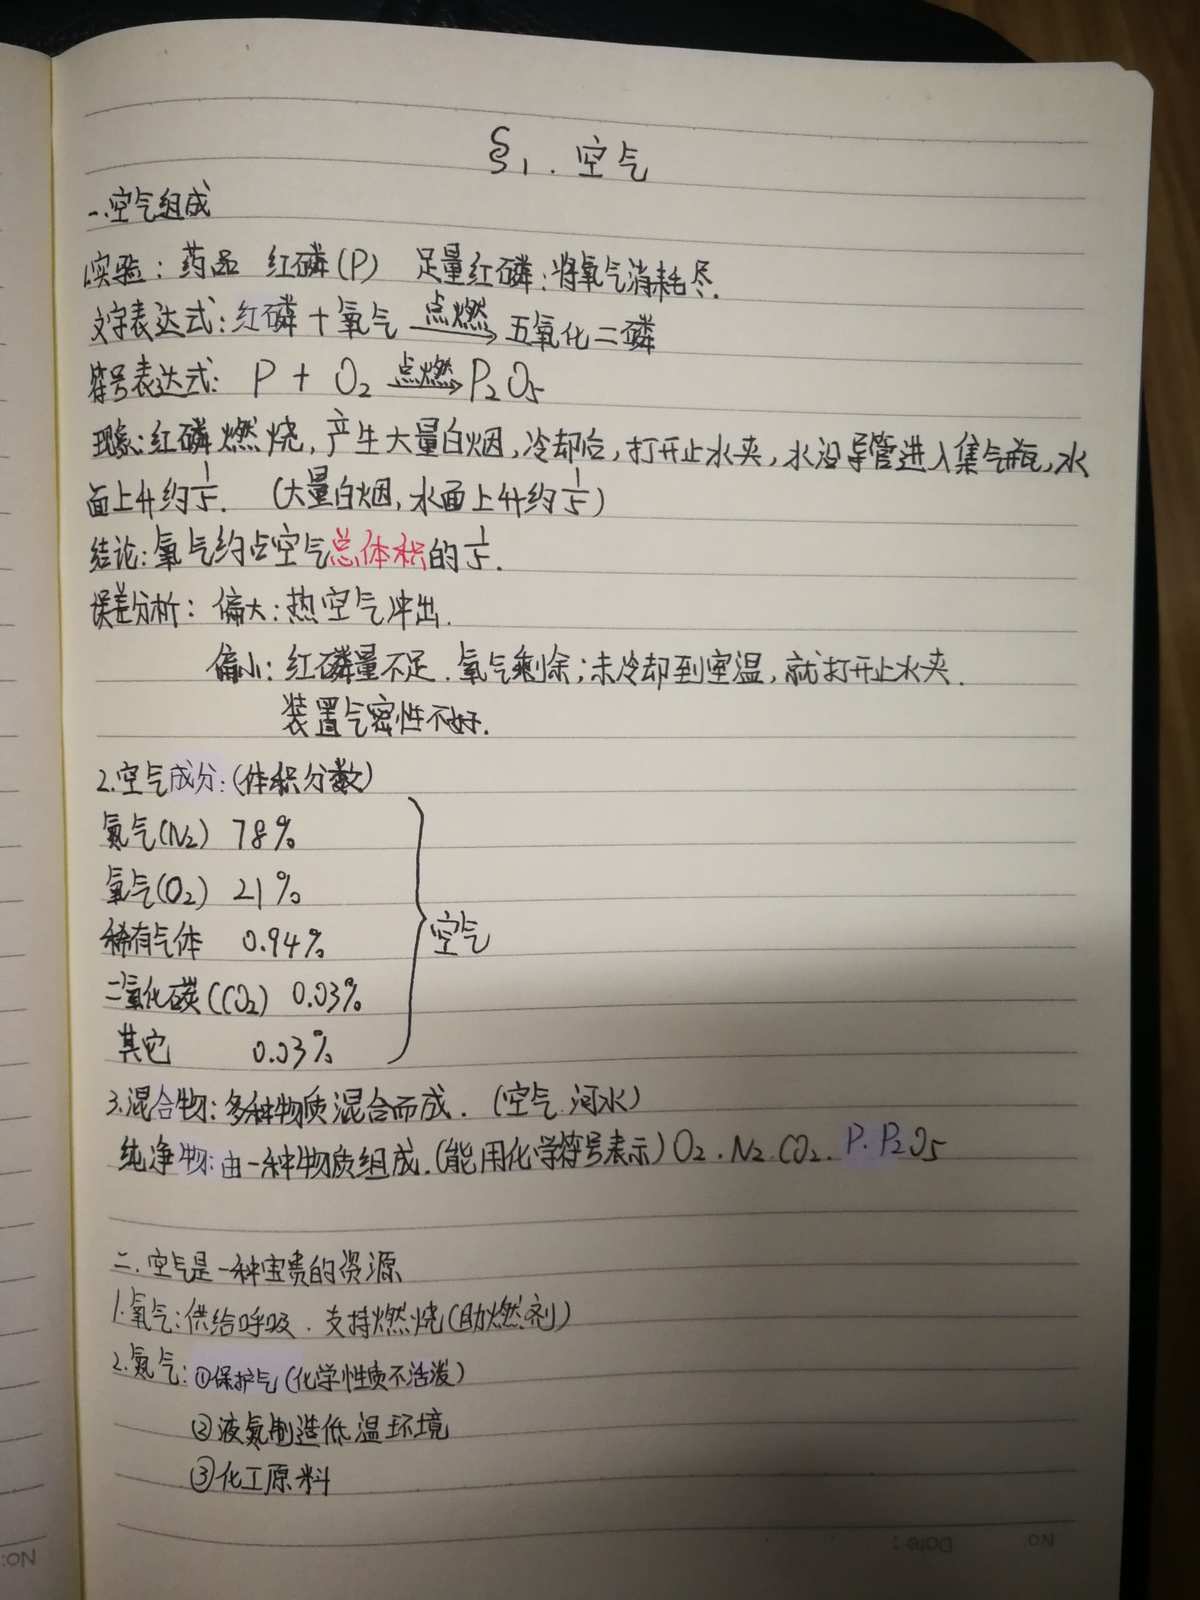 §1. 空气
一.空气组成
1.实验：药品 红磷(P) 足量红磷：将氧气消耗尽.
文字表达式：红磷+氧气 点燃→ 五氧化二磷
符号表达式： P + O₂ 点燃→ P₂O₅
现象：红磷燃烧，产生大量白烟，冷却后，打开止水夹，水沿导管进入集气瓶，水
面上升约1/5. (大量白烟，水面上升约1/5)
结论：氧气约占空气总体积的1/5.
误差分析： 偏大：热空气冲出.
偏小：红磷量不足.氧气剩余；未冷却到室温，就打开止水夹.
装置气密性不好.
2.空气成分：(体积分数)
氮气(N₂) 78%
氧气(O₂) 21%
稀有气体 0.94%
空气
二氧化碳(CO₂) 0.03%
其它 0.03%
3.混合物：多种物质混合而成. (空气.河水)
纯净物：由一种物质组成.(能用化学符号表示)O₂.N₂.CO₂.P.P₂O₅
二.空气是一种宝贵的资源
1.氧气：供给呼吸.支持燃烧(助燃剂)
2.氮气：①保护气(化学性质不活泼)
②液氮制造低温环境
③化工原料
No:
Date:
No: